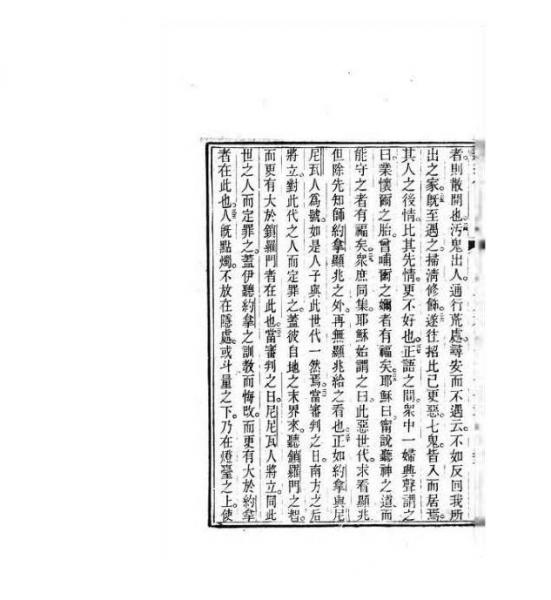 者則散開也汚鬼出人通行荒處尋安而不遇云不如反回我所
出之家既至遇之掃清修飾遂往招比己更惡七鬼皆入而居焉
其人之後情比其先情更不好也正語之間衆中一婦興聲謂之
曰業懷爾之胎曾哺爾之嬭者有福矣耶穌曰甯說聽神之道而
能守之者有福矣衆庶同集耶穌始謂之曰此惡世代求看顯兆
但除先知師約拿顯兆之外再無顯兆給之看也正如約拿與尼
尼瓦人爲號如是人子與此世代一然焉當審判之日南方之后
將立對此代之人而定罪之蓋彼自地之末界來聽鎖羅門之智
而更有大於鎖羅門者在此也當審判之日尼尼瓦人將立同此
世之人而定罪之蓋伊聽約拿之訓教而悔改而更有大於約拿
者在此也人既點燭不放在隱處或斗量之下乃在燈臺之上使